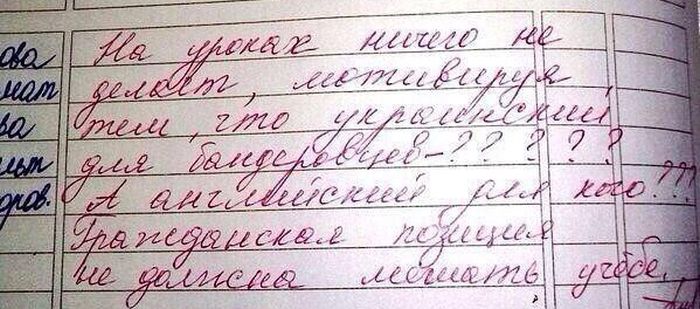 ова На уроках ничего не
нат делает, мотивируя
ва тем, что украинский
льт для бандеровцев-?????
оров. А английский для кого???
Гражданская позиция
не должна мешать учёбе.